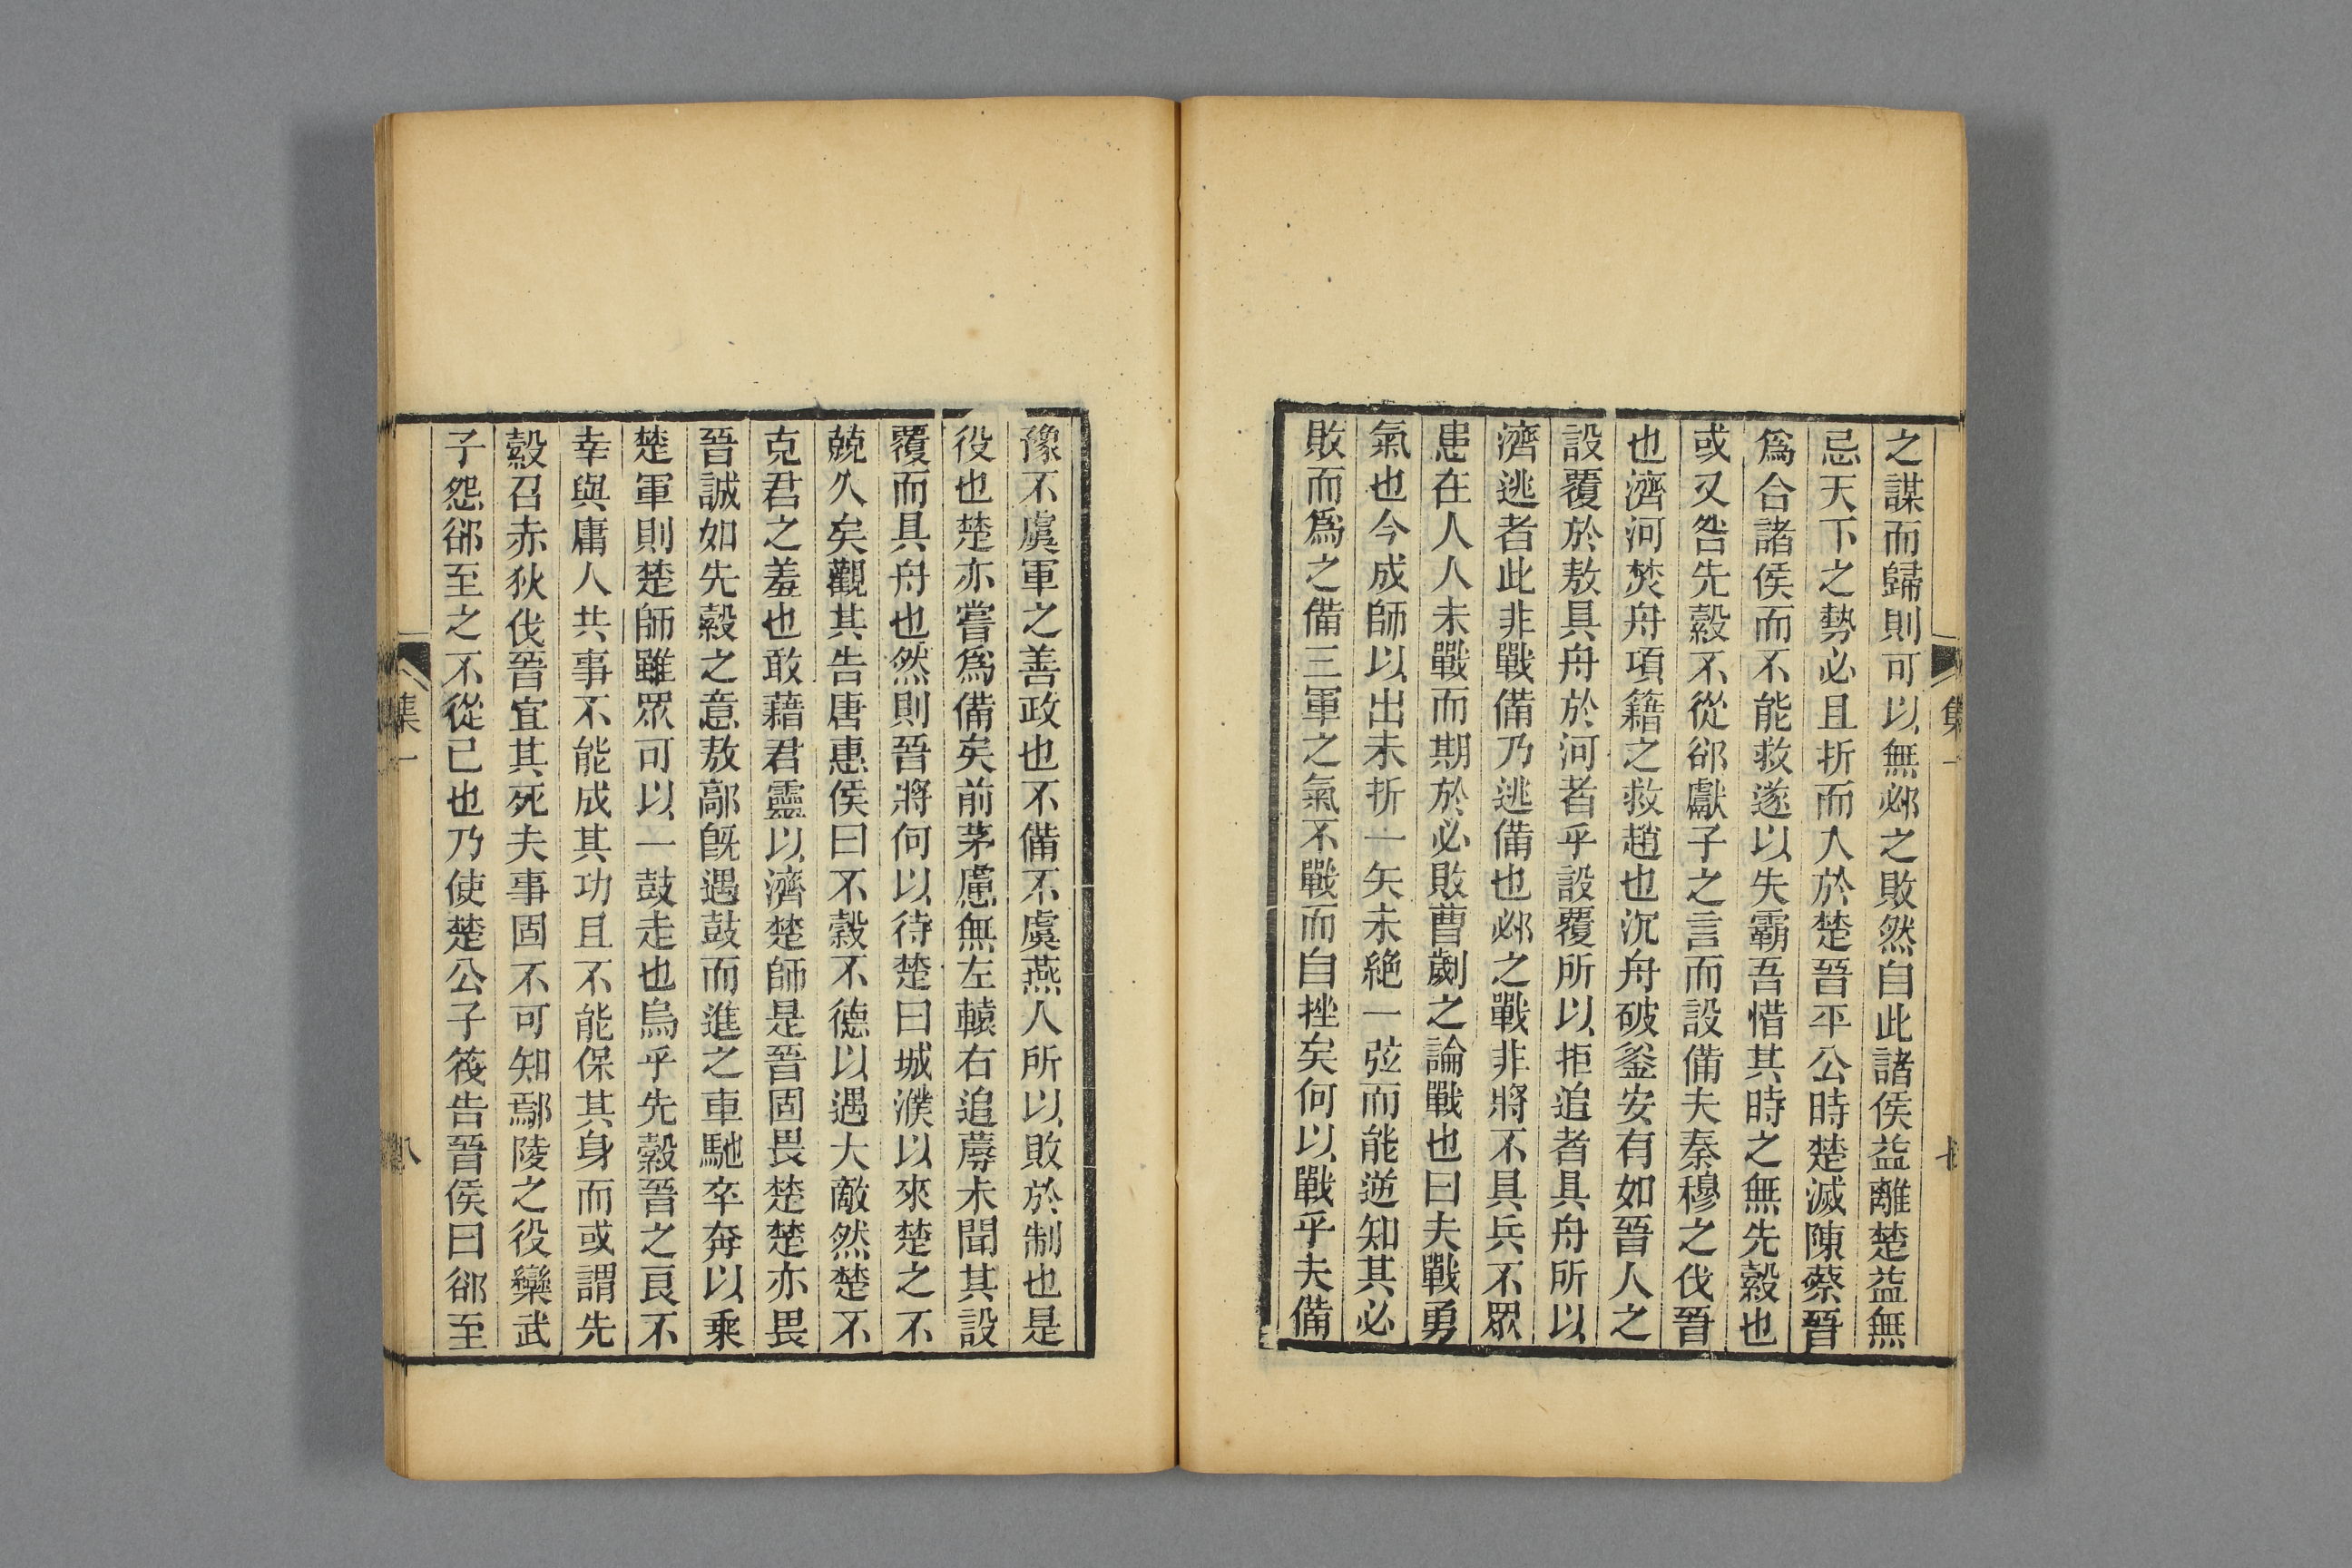 之謀而歸則可以無邲之敗然自此諸侯益離楚益無
忌天下之勢必且折而入於楚晉平公時楚滅陳蔡晉
爲合諸侯而不能救遂以失霸吾惜其時之無先縠也
或又咎先縠不從郤獻子之言而設備夫秦穆之伐晉
也濟河焚舟項籍之救趙也沉舟破釜安有如晉人之
設覆於敖具舟於河者乎設覆所以拒追者具舟所以
濟逃者此非戰備乃逃備也邲之戰非將不具兵不眾
患在人人未戰而期於必敗曹劌之論戰也曰夫戰勇
氣也今成師以出未折一矢未絶一弦而能逆知其必
敗而爲之備三軍之氣不戰而自挫矣何以戰乎夫備
豫不虞軍之善政也不備不虞燕人所以敗於制也是
役也楚亦嘗爲備矣前茅慮無左轅右追蓐未聞其設
覆而具舟也然則晉將何以待楚曰城濮以來楚之不
兢久矣觀其告唐惠侯曰不榖不德以遇大敵然楚不
克君之羞也敢藉君靈以濟楚師是晉固畏楚楚亦畏
晉誠如先縠之意敖鄗旣遇鼓而進之車馳卒奔以乘
楚軍則楚師雖眾可以一鼓走也烏乎先縠晉之良不
幸與庸人共事不能成其功且不能保其身而或謂先
縠召赤狄伐晉宜其死夫事固不可知鄢陵之役欒武
子怨郤至之不從己也乃使楚公子筏告晉侯曰郤至
集一
八